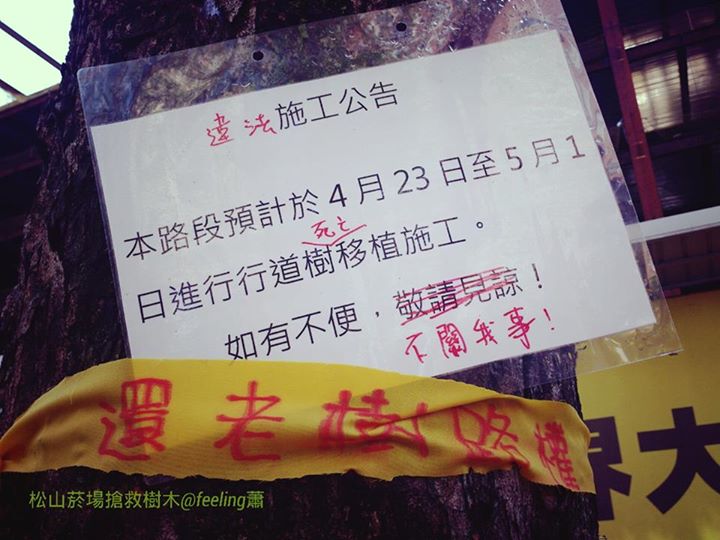 違法施工公告
本路段預計於 4 月 23 日至 5 月 1
死亡
日進行行道樹移植施工。
如有不便，敬請見諒！
不關我事！
還老樹路權
界大
松山菸場搶救樹木@feeling蕭